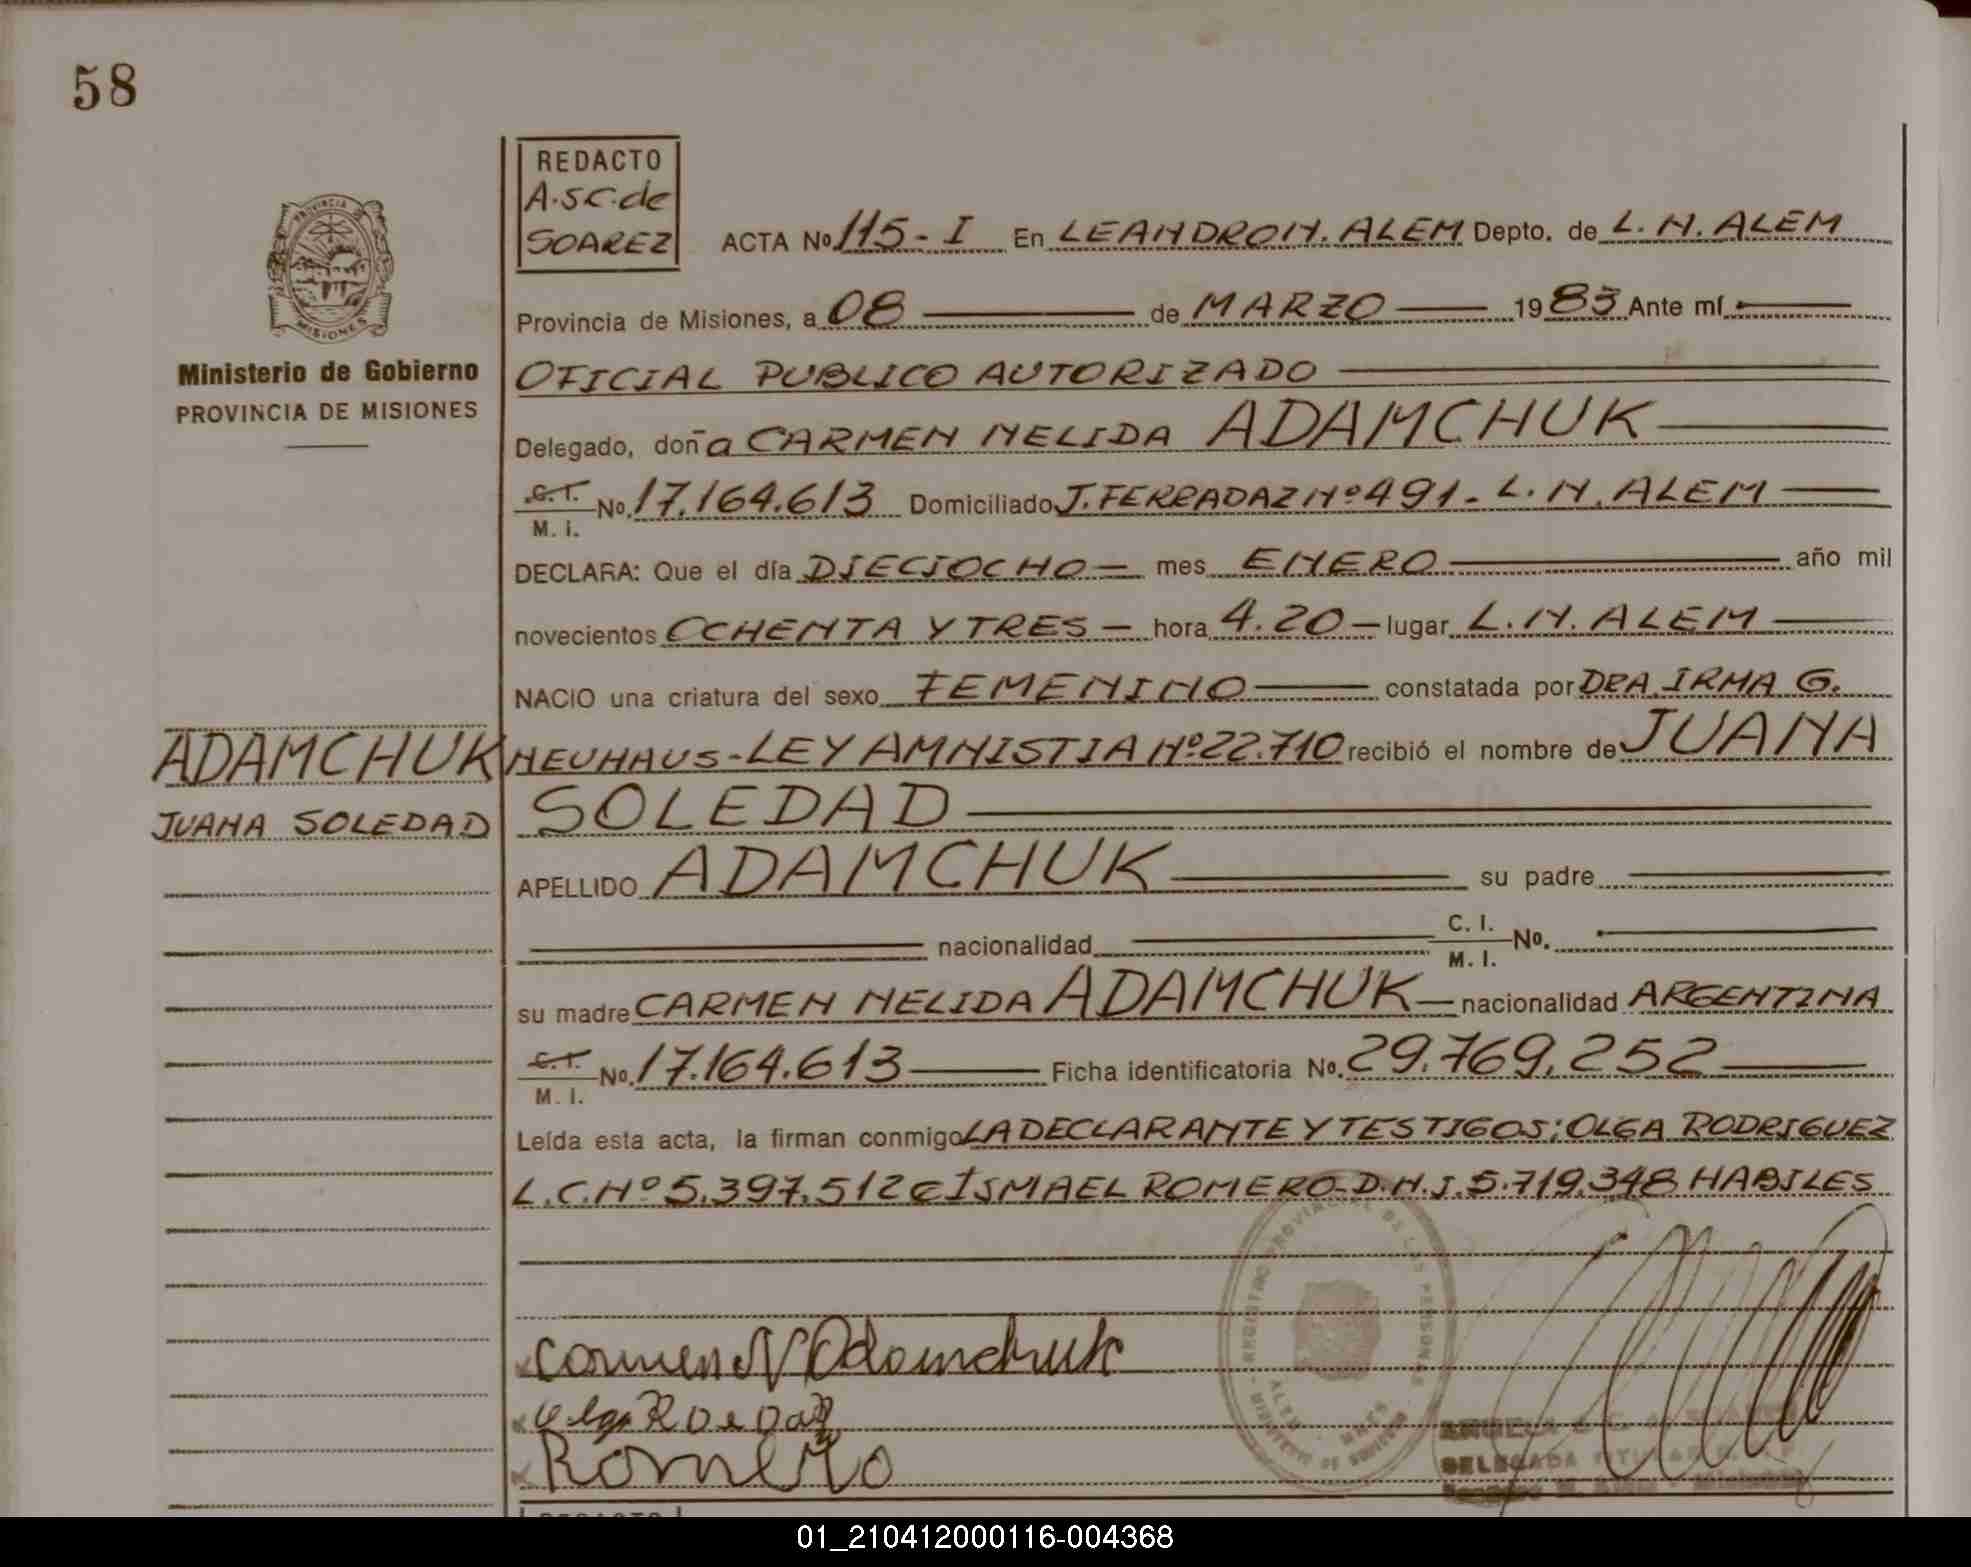 58
REDACTO
A.S.C. de
SOAREZ
ACTA No 115-I En LEANDRO N. ALEM Depto. de L. N. ALEM
PROVINCIA DE
MISIONES
Provincia de Misiones, a 08 de MARZO 1983 Ante mí
Ministerio de Gobierno
PROVINCIA DE MISIONES
OFICIAL PUBLICO AUTORIZADO
Delegado, doña CARMEN NELIDA ADAMCHUK
C. I.
M. I. No. 17.164.613 Domiciliado J. FERRADAZ Nº 491 - L. N. ALEM
DECLARA: Que el día DIECIOCHO - mes ENERO año mil
novecientos OCHENTA Y TRES - hora 4.20 - lugar L. N. ALEM
NACIO una criatura del sexo FEMENINO constatada por DRA. IRMA G.
ADAMCHUK
JUANA SOLEDAD
NEUHAUS - LEY AMNISTIA Nº 22.710 recibió el nombre de JUANA
SOLEDAD
APELLIDO ADAMCHUK su padre
nacionalidad C. I. M. I. No.
su madre CARMEN NELIDA ADAMCHUK - nacionalidad ARGENTINA
C. I.
M. I. No. 17.164.613 Ficha identificatoria No. 29.769.252
Leída esta acta, la firman conmigo LA DECLARANTE Y TESTIGOS: OLGA RODRIGUEZ
L.C. Nº 5.397.512 e ISMAEL ROMERO - D.N.I. 5.719.348 HABILES
REGISTRO PROVINCIAL DE LAS PERSONAS
Carmen N Adamchuk
Olga
Romero
DELEGADA TITULAR
01_210412000116-004368